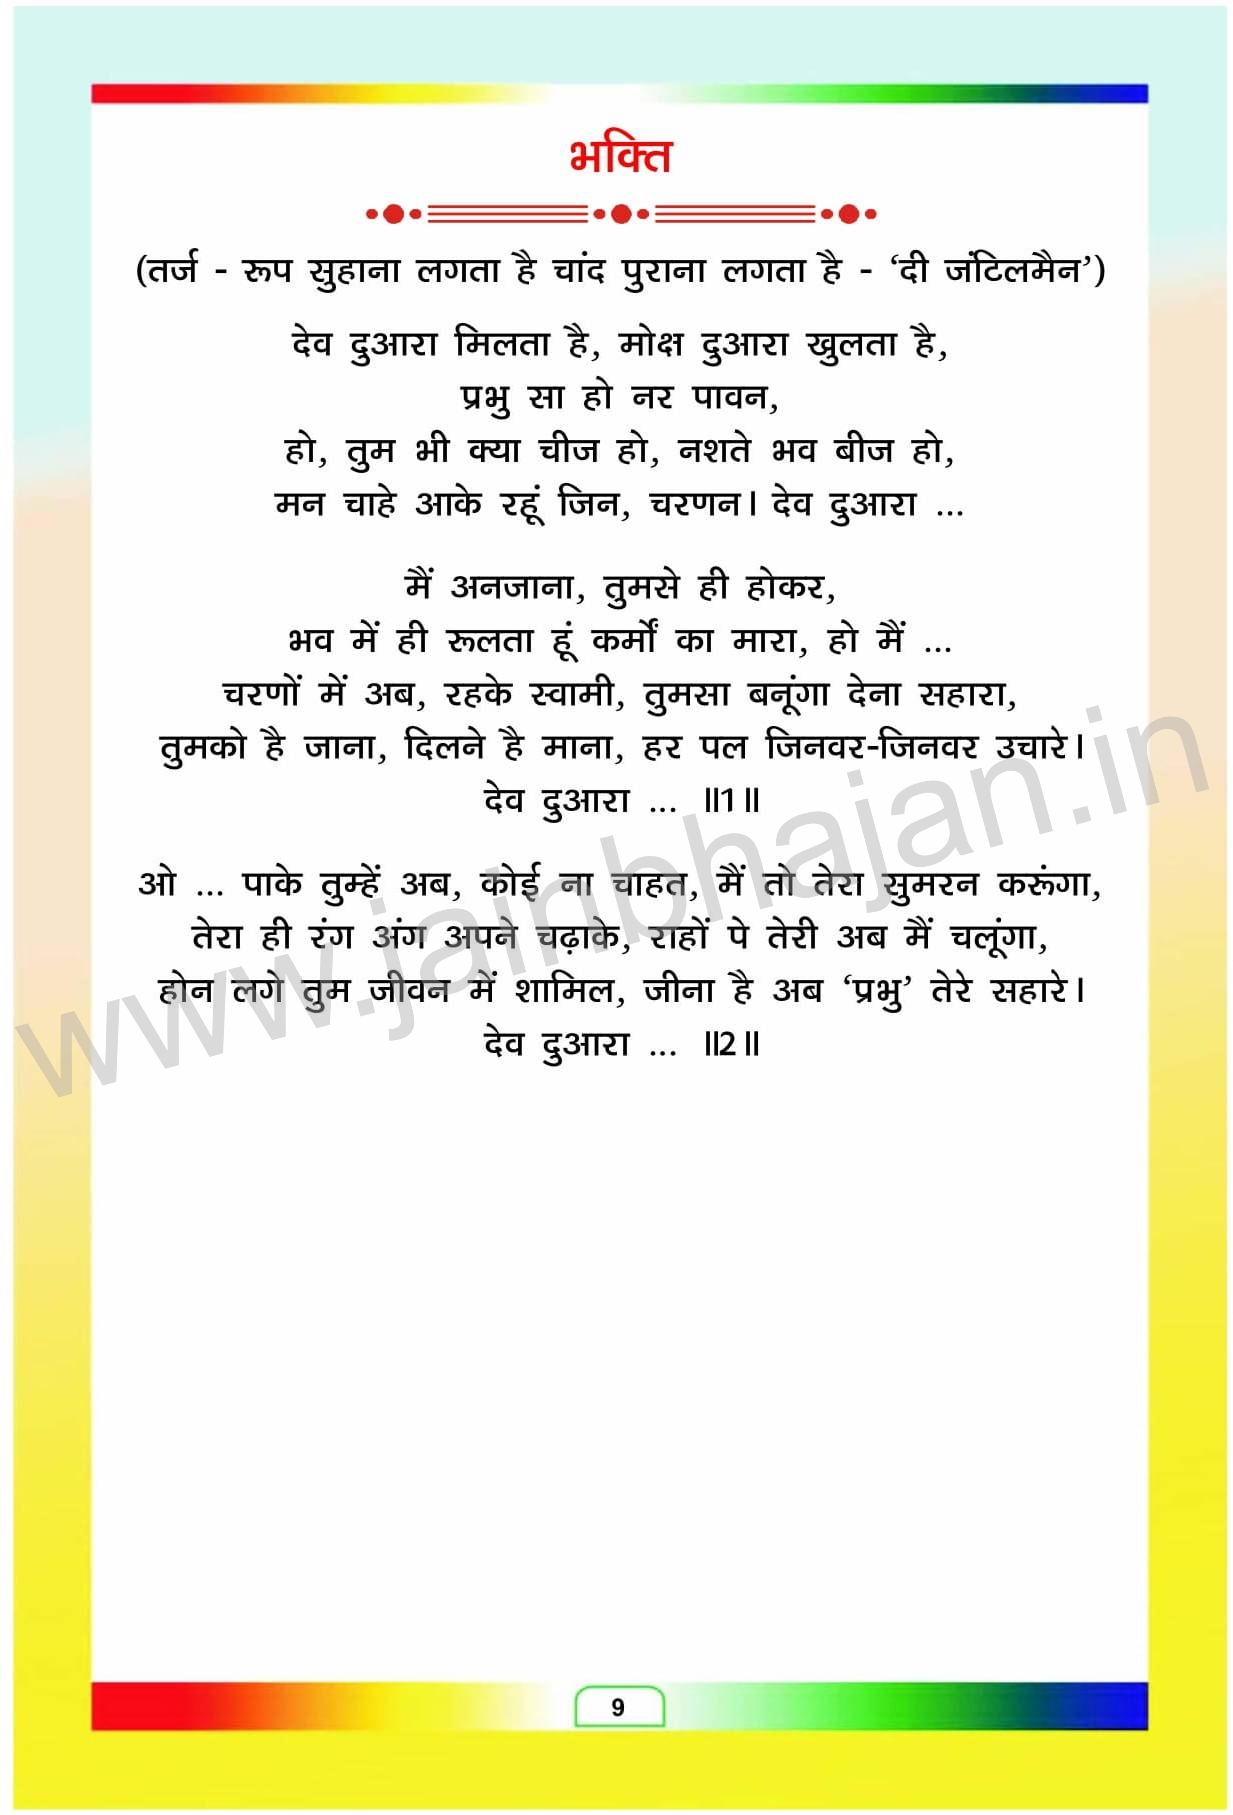 भक्ति
(तर्ज - रूप सुहाना लगता है चांद पुराना लगता है - ‘दी जंटिलमैन’)
देव दुआरा मिलता है, मोक्ष दुआरा खुलता है,
प्रभु सा हो नर पावन,
हो, तुम भी क्या चीज हो, नशते भव बीज हो,
मन चाहे आके रहूं जिन, चरणन। देव दुआरा ...
मैं अनजाना, तुमसे ही होकर,
भव में ही रूलता हूं कर्मों का मारा, हो मैं ...
चरणों में अब, रहके स्वामी, तुमसा बनूंगा देना सहारा,
तुमको है जाना, दिलने है माना, हर पल जिनवर-जिनवर उचारे।
देव दुआरा ... ॥1॥
ओ ... पाके तुम्हें अब, कोई ना चाहत, मैं तो तेरा सुमरन करूंगा,
तेरा ही रंग अंग अपने चढ़ाके, राहों पे तेरी अब मैं चलूंगा,
होन लगे तुम जीवन में शामिल, जीना है अब ‘प्रभु’ तेरे सहारे।
देव दुआरा ... ॥2॥
www.jainbhajan.in
9